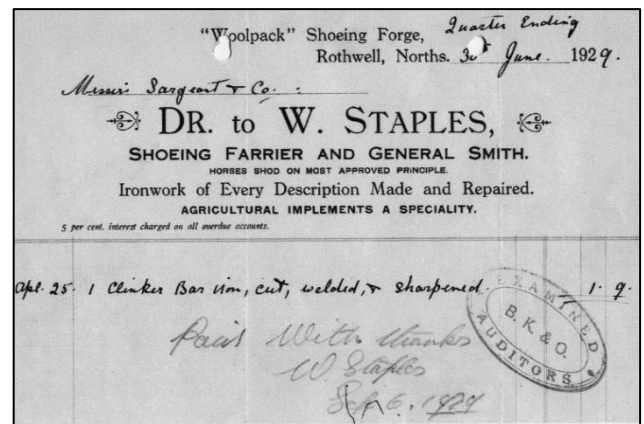 Quarter Ending
"Woolpack" Shoeing Forge,
Rothwell, Norths. 30th June. 1929.
Messrs Sargeant & Co.
DR. to W. STAPLES,
SHOEING FARRIER AND GENERAL SMITH.
HORSES SHOD ON MOST APPROVED PRINCIPLE.
Ironwork of Every Description Made and Repaired.
AGRICULTURAL IMPLEMENTS A SPECIALITY.
5 per cent. interest charged on all overdue accounts.
Apl. 25. 1 Clinker Bar iron, cut, welded, & sharpened. 1. 9.
EXAMINED
B. K. & O.
AUDITORS
Paid With thanks
W. Staples
Sep. 6. 1929